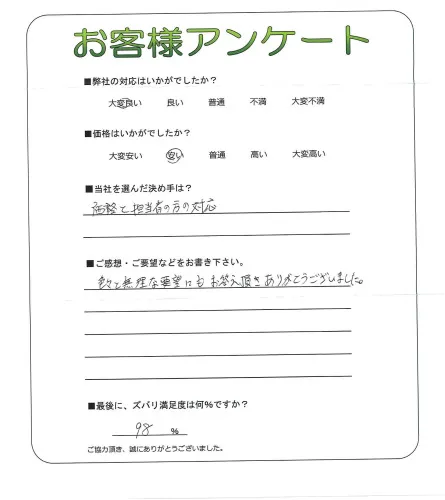 お客様アンケート
■弊社の対応はいかがでしたか？
大変良い 良い 普通 不満 大変不満
■価格はいかがでしたか？
大変安い 安い 普通 高い 大変高い
■当社を選んだ決め手は？
価格と担当者の方の対応
■ご感想・ご要望などをお書き下さい。
色々と無理な要望にもお答え頂きありがとうございました。
■最後に、ズバリ満足度は何%ですか？
98 %
ご協力頂き、誠にありがとうございました。